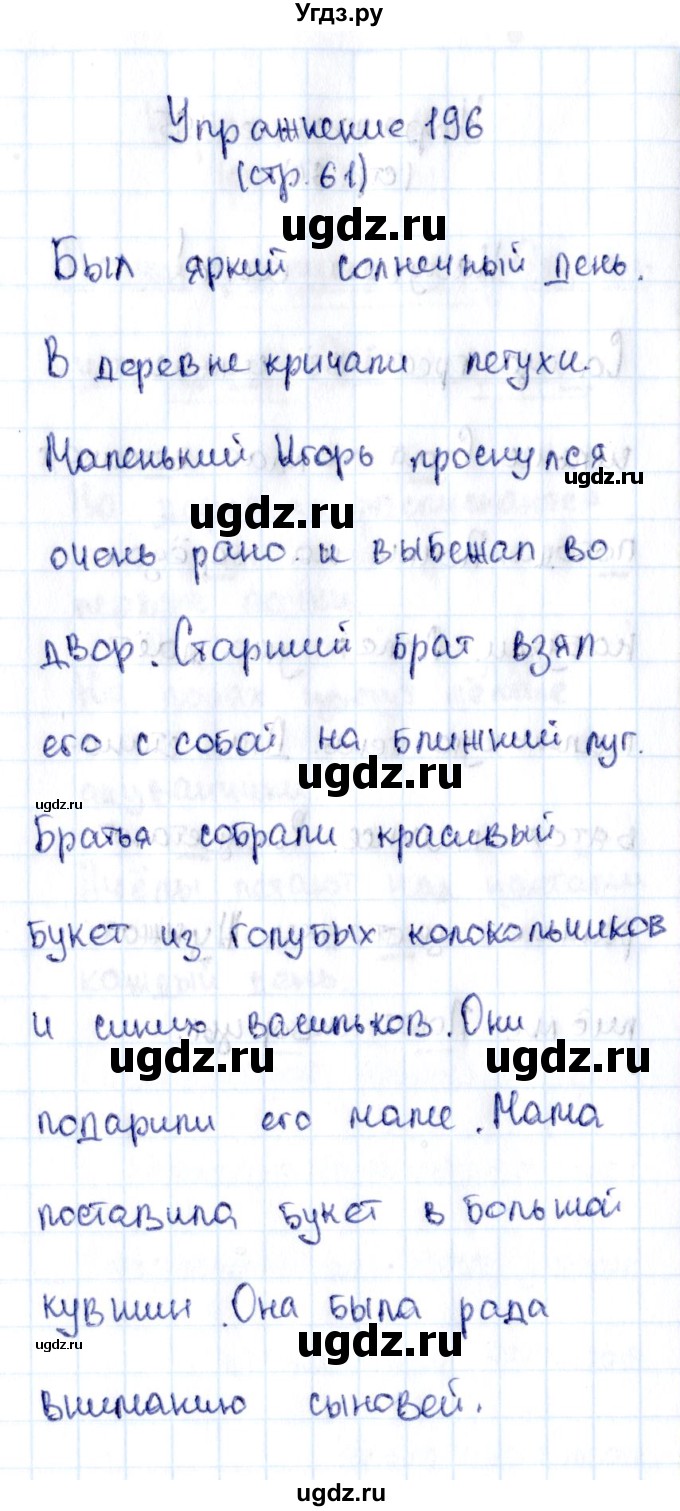 Угдз.ру
Упражнение 196
(стр. 61)
ugdz.ru
Был яркий солнечный день.
В деревне кричали петухи.
Маленький Игорь проснулся
ugdz.ru
ugdz.ru
очень рано и выбежал во
двор. Старший брат взял
его с собой на ближний луг.
ugdz.ru
ugdz.ru
Братья собрали красивый
букет из голубых колокольчиков
и синих васильков. Они
ugdz.ru
ugdz.ru
подарили его маме. Мама
поставила букет в большой
кувшин. Она была рада
ugdz.ru
ugdz.ru
вниманию сыновей.
ugdz.ru